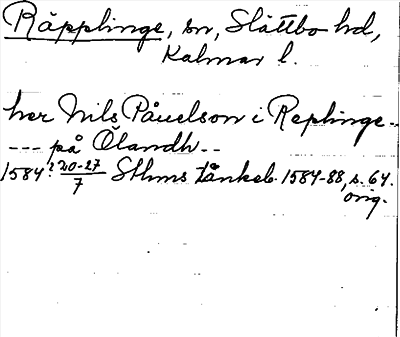 Räpplinge, sn, Slättbo hd,
Kalmar l.
her Nils Påuelson i Replinge--
--- på Ölandh--
1584? 20-27/7 Sthms tänkeb. 1584-88, s. 64.
orig.